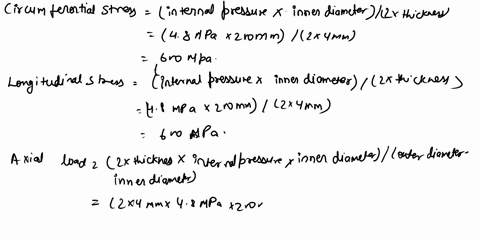 Circumferential stress = (internal pressure x inner diameter)/(2x thickness)
= (4.8 MPa x 200mm) / (2x4mm)
= 600 Mpa.
Longitudinal stress = (internal pressure x inner diameter) / (2x thickness)
= (4.8 MPa x 200mm) / (2x4mm)
= 600 MPa.
Axial load = (2x thicknes x internal pressure x inner diameter) / (outer diameter-
inner diameter)
= (2x4mm x 4.8 MPa x200